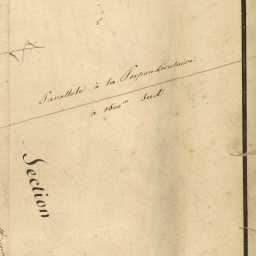 Parallele à la Perpendiculaire
à 1600m Sud
Section